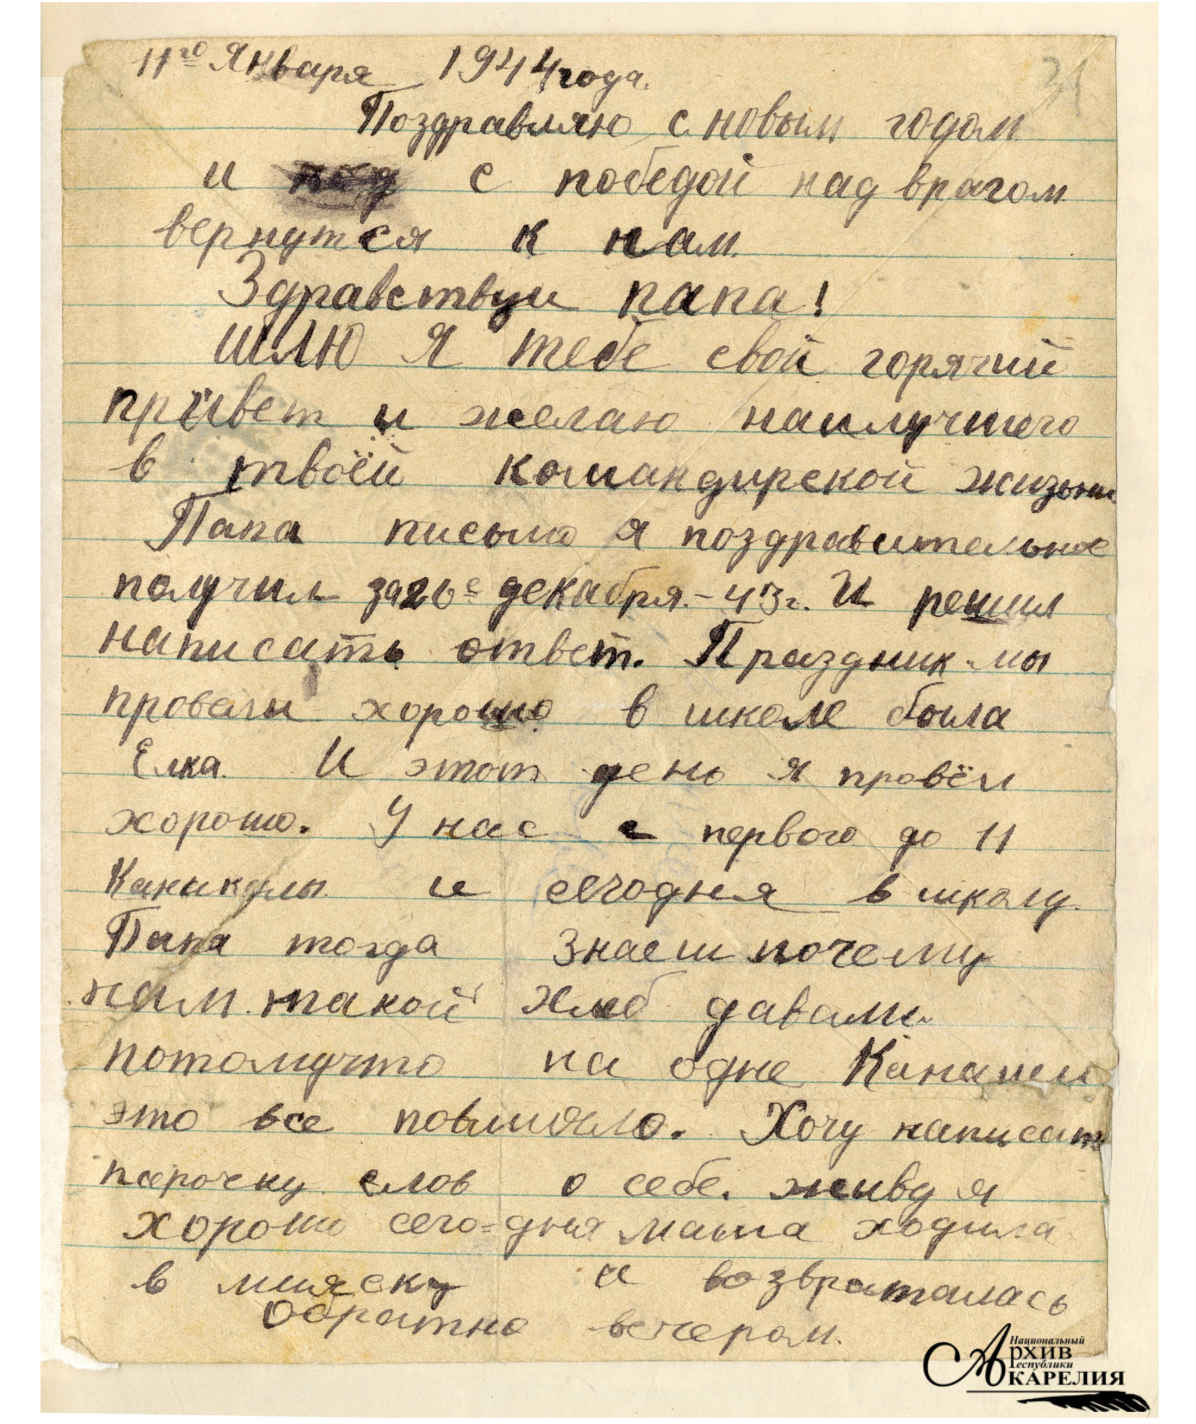 11го Января 1944 года.
31
Поздравляю с новым годом
и с победой над врагом
вернутся к нам.
Здравствуи папа!
шлю я тебе свой горячий
привет и желаю наилучшего
в твоёй командирской жизьни
Папа письмо я поздравительное
получил за 26е декабря.-43г. И решил
написать ответ. Праздник мы
провели хорошо в школе была
Елка. И этот день я провёл
хорошо. У нас с первого до 11
Каникулы и сегодня в школу.
Папа тогда знаеш почему
нам такой хлеб давали.
потомучто на одне
это все повлияло. Хочу написать
парочку слов о себе. живу я
хорошо сего=дня мама ходила
в и возвраталась
обратно вечером.
Национальный
Архив
Республики
КАРЕЛИЯ